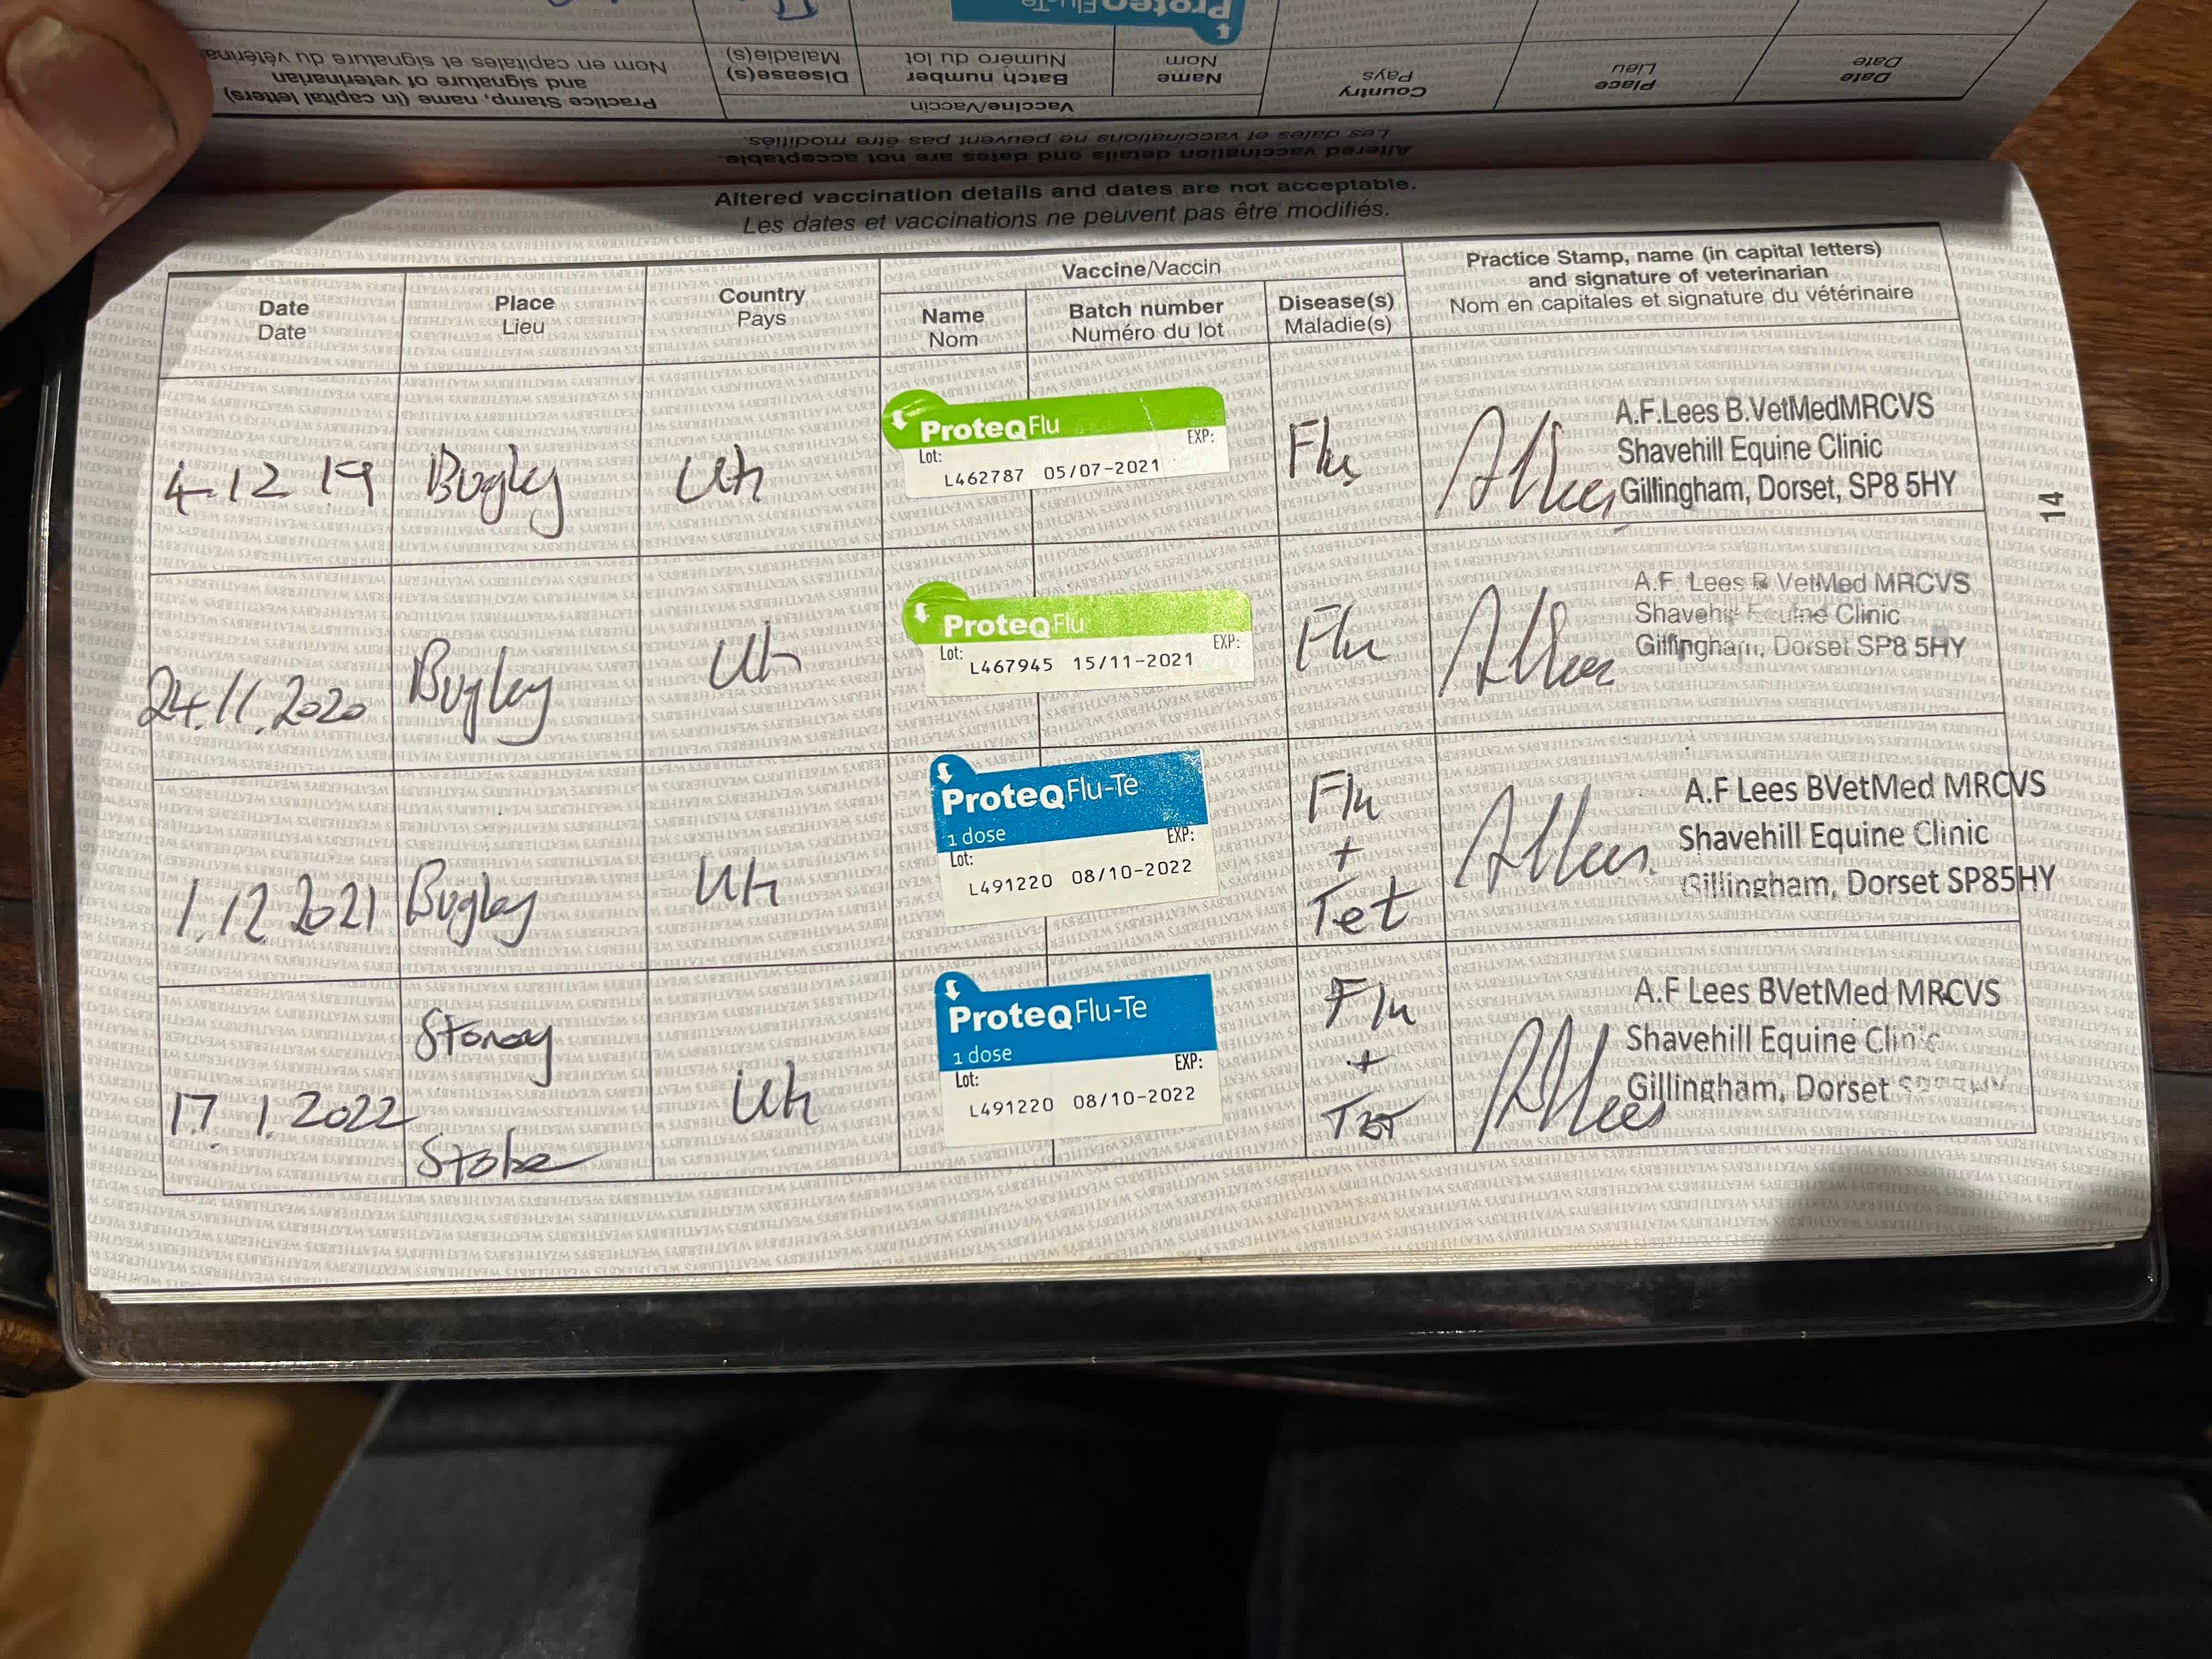 Practice Stamp, name (in capital letters)
and signature of veterinarian
Nom en capitales et signature du vétérina
Disease(s)
Maladie(s)
Vaccine/Vaccin
Batch number
Numéro du lot
Name
Nom
Country
Pays
Place
Lieu
Date
Date
ProteqFlu-Te
Altered vaccination details and dates are not acceptable.
Les dates et vaccinations ne peuvent pas être modifiés.
Altered vaccination details and dates are not acceptable.
Les dates et vaccinations ne peuvent pas être modifiés.
Date
Date
Place
Lieu
Country
Pays
Vaccine/Vaccin
Name
Nom
Batch number
Numéro du lot
Disease(s)
Maladie(s)
Practice Stamp, name (in capital letters)
and signature of veterinarian
Nom en capitales et signature du vétérinaire
4.12 19
Bugley
Uk
ProteqFlu
Lot: EXP:
L462787 05/07-2021
Flu
ALees
A.F.Lees B.VetMedMRCVS
Shavehill Equine Clinic
Gillingham, Dorset, SP8 5HY
24.11.2020
Bugley
Uk
ProteqFlu
Lot: EXP:
L467945 15/11-2021
Flu
ALees
A.F Lees B VetMed MRCVS
Shavehill Equine Clinic
Gillingham, Dorset SP8 5HY
1.12.2021
Bugley
Uk
ProteqFlu-Te
1 dose
Lot: EXP:
L491220 08/10-2022
Flu
+
Tet
ALees
A.F Lees BVetMed MRCVS
Shavehill Equine Clinic
Gillingham, Dorset SP85HY
17.1.2022
Stoney
Stoke
Uk
ProteqFlu-Te
1 dose
Lot: EXP:
L491220 08/10-2022
Flu
+
Tet
ALees
A.F Lees BVetMed MRCVS
Shavehill Equine Clinic
Gillingham, Dorset
14